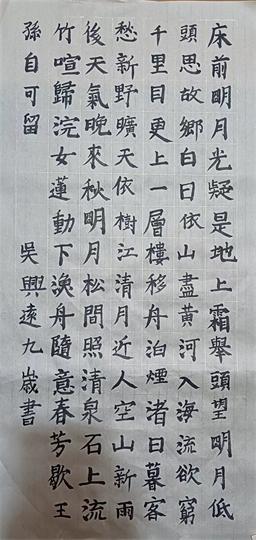 床前明月光疑是地上霜舉頭望明月低
頭思故鄉白日依山盡黃河入海流欲窮
千里目更上一層樓移舟泊煙渚日暮客
愁新野曠天依樹江清月近人空山新雨
後天氣晚來秋明月松間照清泉石上流
竹喧歸浣女蓮動下漁舟隨意春芳歇王
孫自可留 吳興遠九歲書